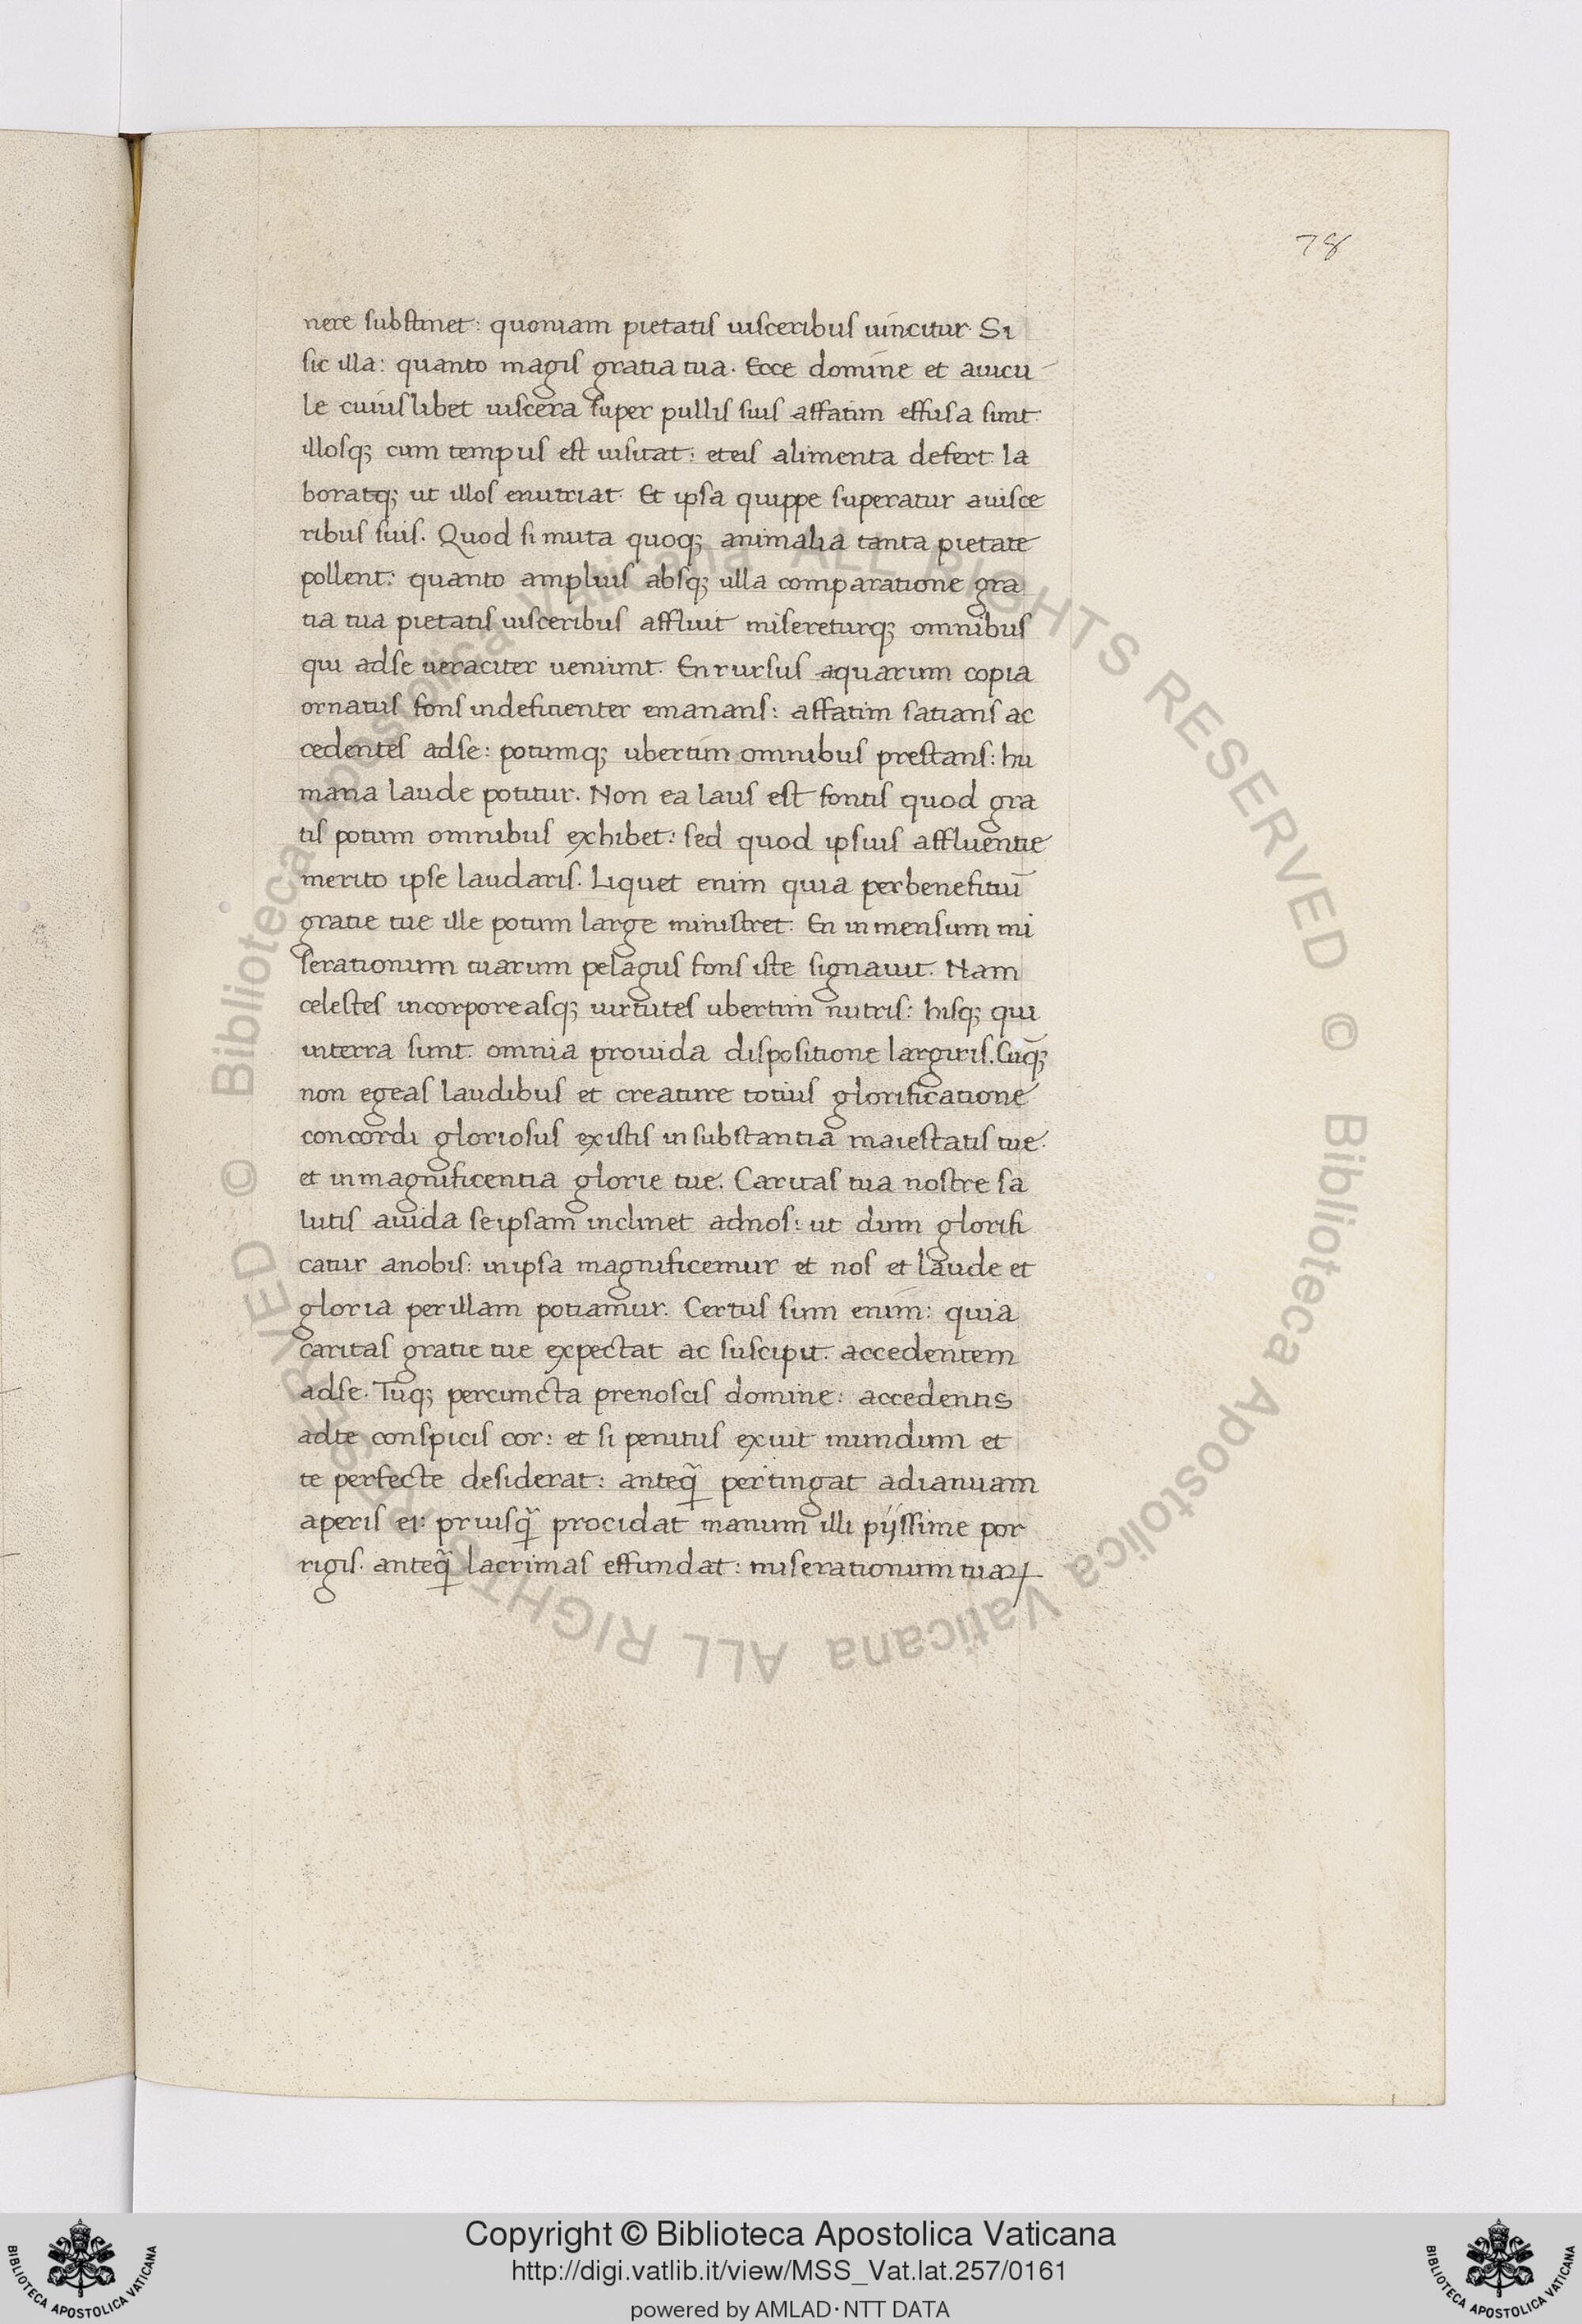 78
nere substinet: quoniam pietatis uisceribus uincitur. Si
sic illa: quanto magis gratia tua. Ecce domine et auicu
le cuiuslibet uiscera super pullis suis affatim effusa sunt.
illosq; cum tempus est uisitat: eteis alimenta defert. la
boratq; ut illos enutriat. Et ipsa quippe superatur auisce
ribus suis. Quod si muta quoq; animalia tanta pietate
pollent: quanto amplius absq; ulla comparatione gra
tia tua pietatis uisceribus affluit misereturq; omnibus
qui adse ueraciter ueniunt. En rursus aquarum copia
ornatus fons indefitienter emanans: affatim satians ac
cedentes adse: potumq; ubertim omnibus prestans: hu
mana laude potitur. Non ea laus est fontis quod gra
tis potum omnibus exhibet: sed quod ipsius affluentie
merito ipse laudaris. Liquet enim quia perbenefitiū
gratie tue ille potum large ministret. En inmensum mi
serationum tuarum pelagus fons iste signauit. Nam
celestes incorporeasq; uirtutes ubertim nutris: hisq; qui
interra sunt. omnia prouida dispositione largiris. Cuq̄;
non egeas laudibus et creature totius glorificatione
concordi gloriosus existis insubstantia maiestatis tue.
et inmagnificentia glorie tue. Caritas tua nostre sa
lutis auida seipsam inclinet adnos: ut dum glorifi
catur anobis: inipsa magnificemur et nos et laude et
gloria perillam potiamur. Certus sum enim: quia
caritas gratie tue expectat ac suscipit. accedentem
adse. Tuq; percuncta prenoscis domine: accedentis
adte conspicis cor: et si penitus exuit mundum et
te perfecte desiderat: anteq̃ pertingat adianuam
aperis ei: priusq̃ procidat manum illi pijssime por
rigis. anteq̃ lacrimas effundat: miserationum tuaꝝ
Copyright © Biblioteca Apostolica Vaticana
http://digi.vatlib.it/view/MSS_Vat.lat.257/0161
powered by AMLAD·NTT DATA
BIBLIOTECA APOSTOLICA VATICANA
BIBLIOTECA APOSTOLICA VATICANA
© Biblioteca Apostolica Vaticana ALL RIGHTS RESERVED © Biblioteca Apostolica Vaticana ALL RIGHTS RESERVED